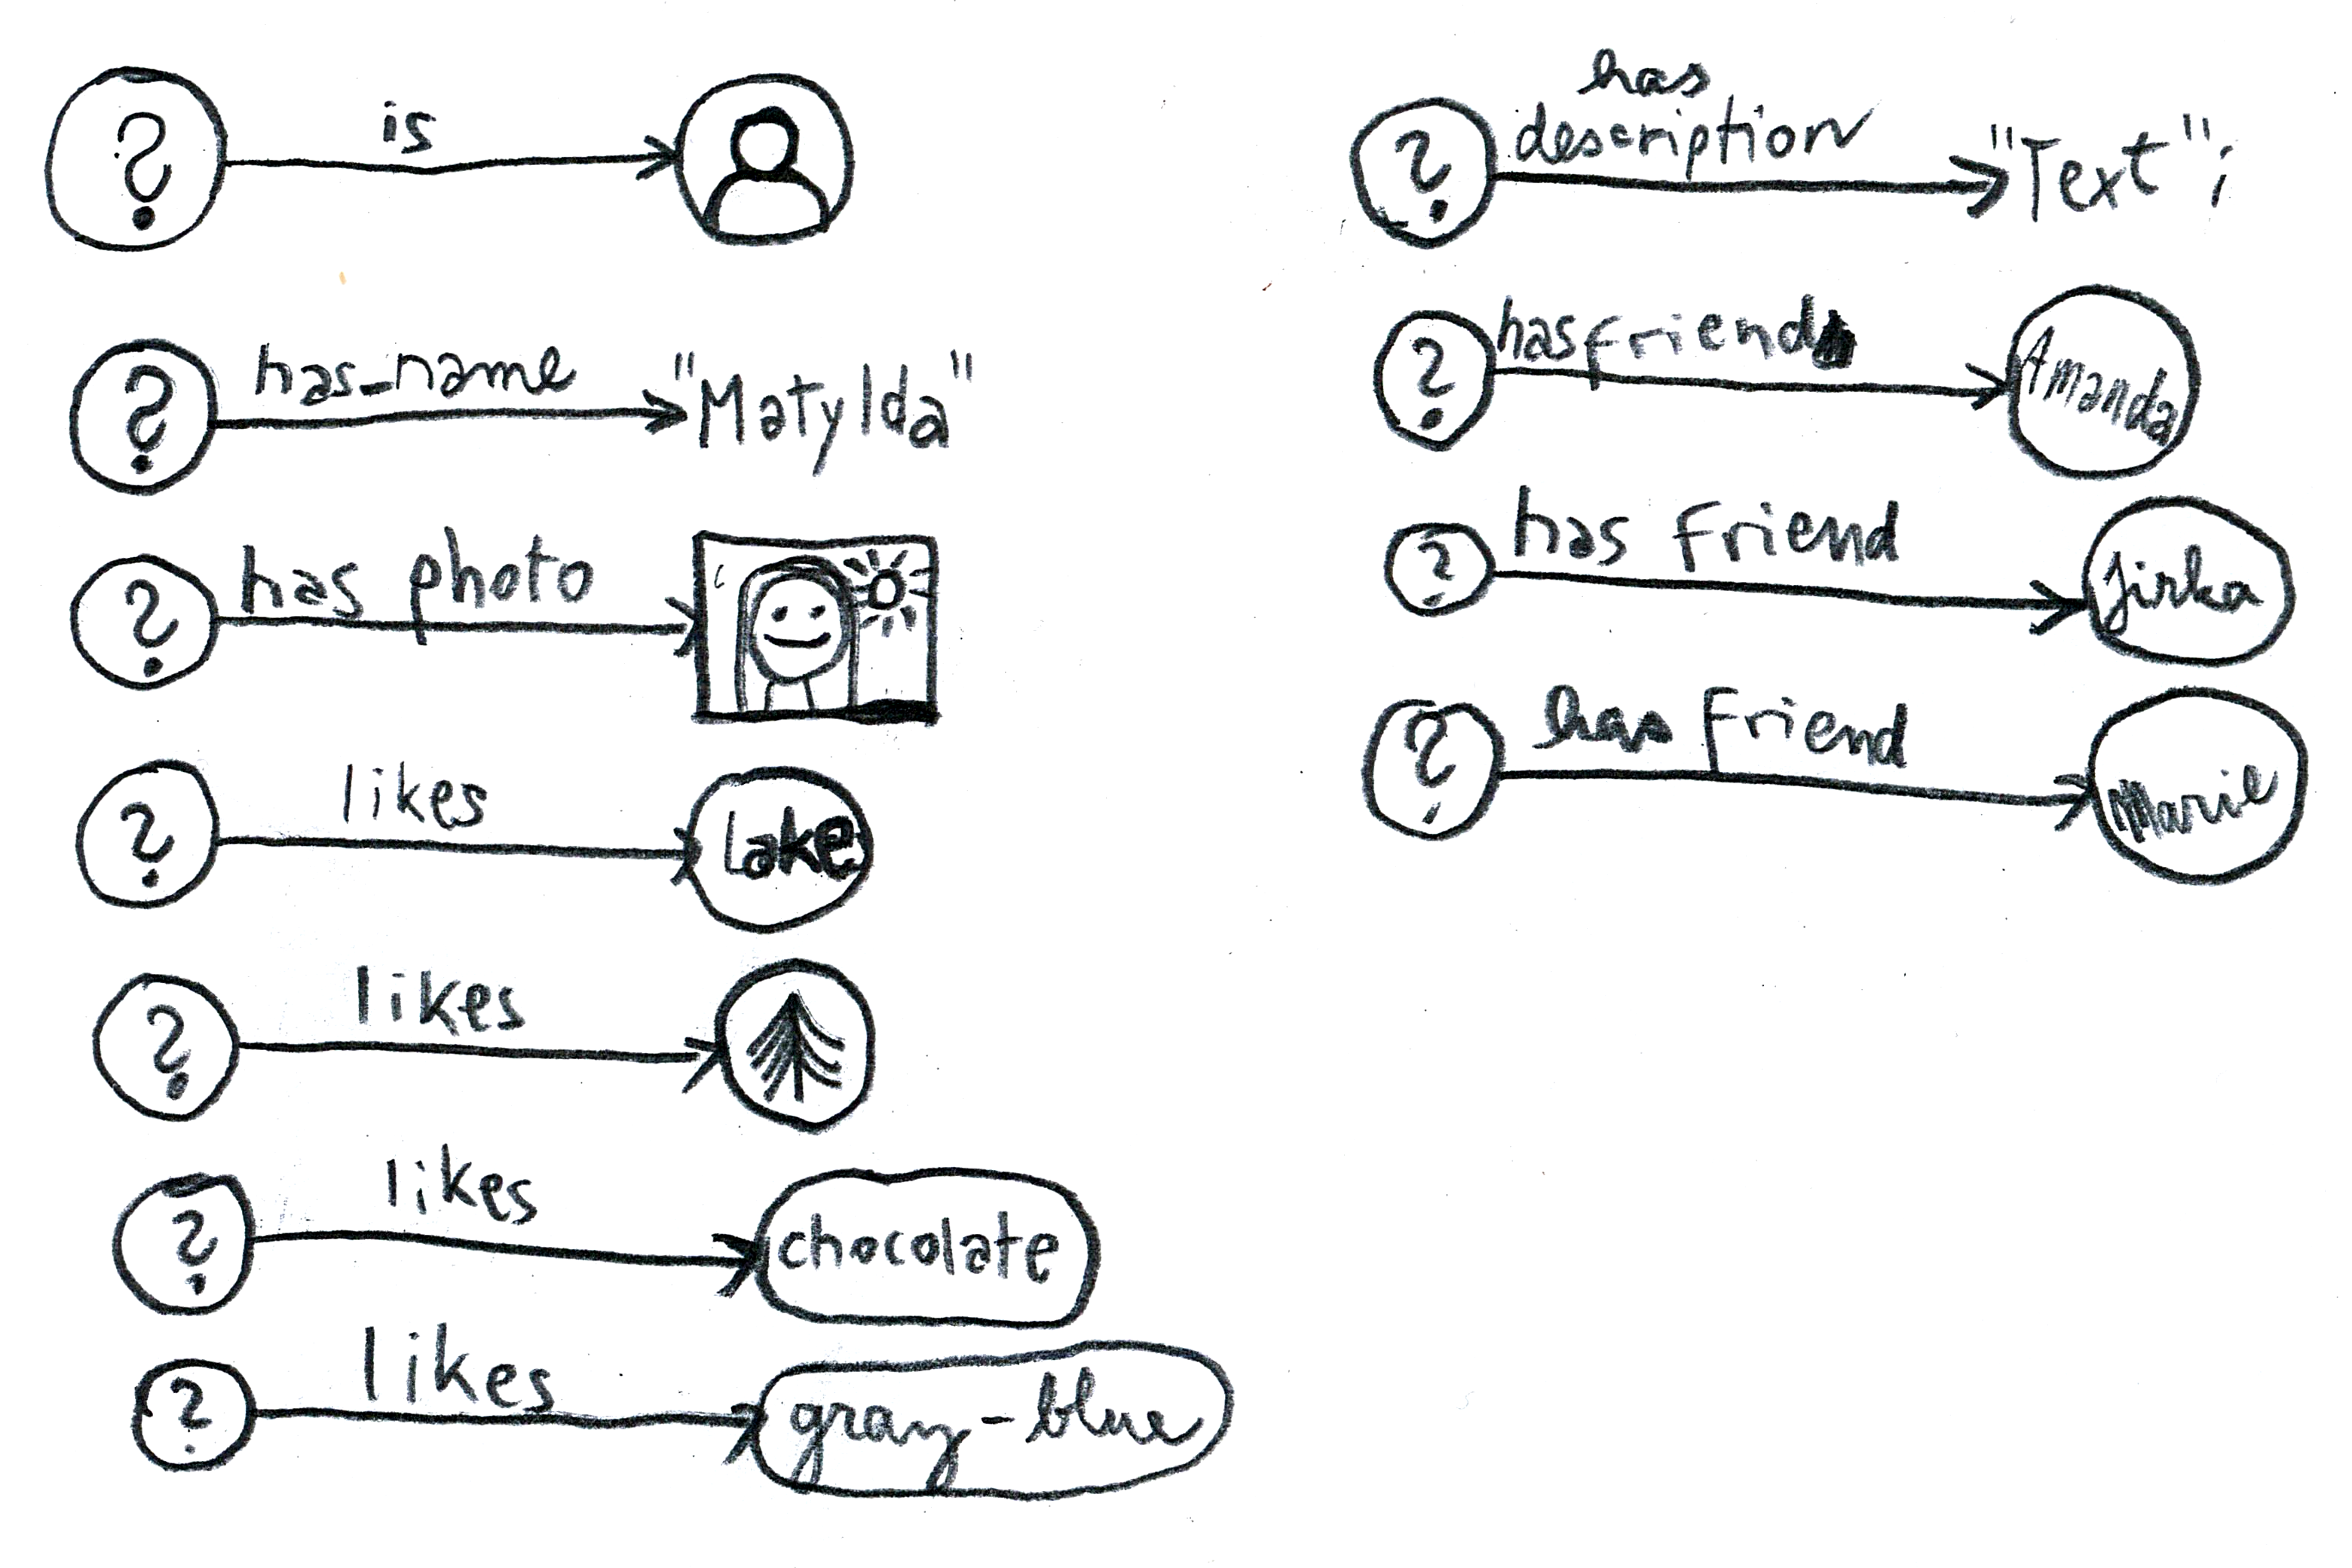 ? is
? has_name "Matylda"
? has photo
? likes Lake
? likes
? likes chocolate
? likes gray-blue
has
? description "Text";
? has friend Amanda
? has friend Jirka
? has friend Marie